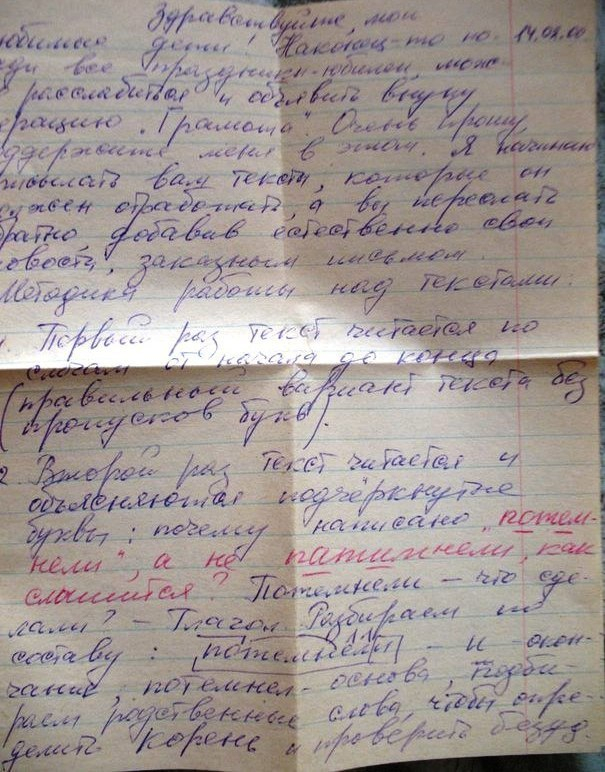 Здравствуйте, мои
юбимые дети! Наконец-то по- 14.02.00
ади все праздники-юбилеи, мож-
расслабиться и объявить внуку
ерацию „Грамота“. Очень прошу
ддержите меня в этом. Я начинаю
рисылать вам тексты, которые он
олжен отработать, а вы переслать
братно добавив естественно свои
овости, заказным письмом.
Методика работы над текстами:
1. Первый раз текст читается по
слогам от начала до конца
(правильный вариант текста без
пропусков букв).
2. Второй раз текст читается и
объясняются подчёркнутые
буквы: почему написано „потем-
нели“, а не патимнели, как
слышится? Потемнели – что сде-
лали? – Глагол. Разбираем по
составу: потемнели – и окон-
чание, потемнел- основа, Подби-
раем родственные слова, чтобы опре-
делить корень и проверить безуд.